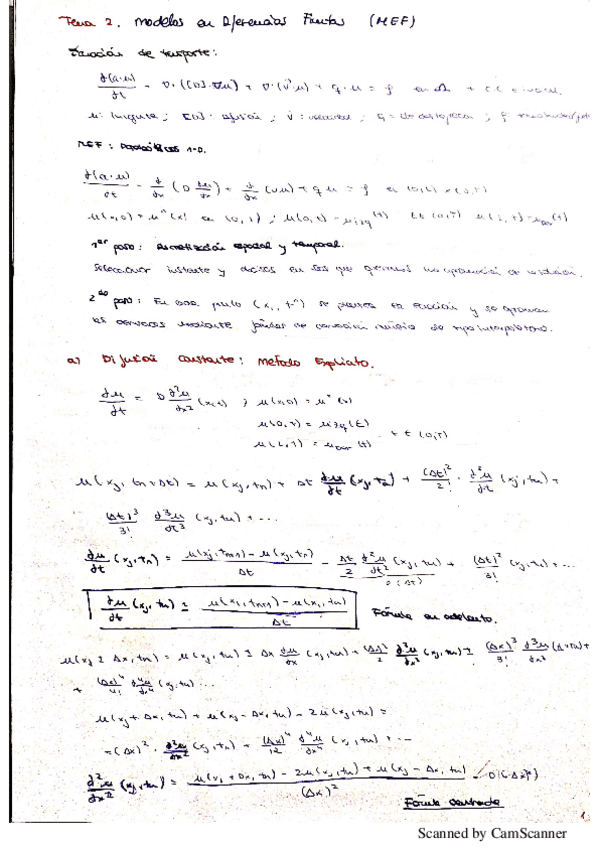 Tema 2. Modelos en Diferencias Finitas (MEF)
Ecuación de trasporte:
∂(a·u)/∂t - ∇·([D]·∇u) + ∇·(v u) + q·u = f en Ω + CC
u: incógnita; [D]: difusión; v: velocidad; q:
MEF: Parabólicos 1-D.
∂(a·u)/∂t - ∂/∂x (D ∂u/∂x) + ∂/∂x (vu) + q u = f en (0,L) x (0,T)
u(x,0) = u⁰(x) en (0,L); u(0,t) = u izq (t) t∈(0,T) u(L,t) = u der (t)
1er paso: Discretización espacial y temporal.
Seleccionar instante y en los que queremos una aproximación de la solución.
2do paso: En cada punto (x, tⁿ) se plantea la ecuación y se aproximan
las derivadas mediante fórmulas de derivación numérica de tipo interpolatorio.
a) Difusión constante: Método Explícito.
∂u/∂t = D ∂²u/∂x² (x,t) ; u(x,0) = u⁰(x)
u(0,t) = u izq (t)
u(L,t) = u der (t) t (0,T)
u(xj, tn+Δt) = u(xj, tn) + Δt ∂u/∂t (xj, tn) + (Δt)²/2! · ∂²u/∂t (xj, tn) +
(Δt)³/3! ∂³u/∂t³ (xj, tn) + ...
∂u/∂t (xj, tn) = u(xj, tn+1) - u(xj, tn)/Δt - Δt/2 ∂²u/∂t² (xj, tn) + (Δt)²/3! (xj, tn) + ...
O(Δt)
∂u/∂t (xj, tn) ≈ u(xj, tn+1) - u(xj, tn)/Δt Fórmula en adelanto.
u(xj ± Δx, tn) = u(xj, tn) ± Δx ∂u/∂x (xj, tn) + (Δx)²/2 ∂²u/∂x² (xj, tn) ± (Δx)³/3! ∂³u/∂x³ (xj, tn) +
+ (Δx)⁴/4! ∂⁴u/∂x⁴ (xj, tn) ...
u(xj + Δx, tn) + u(xj - Δx, tn) - 2u(xj, tn) =
= (Δx)² · ∂²u/∂x² (xj, tn) + (Δx)⁴/12 ∂⁴u/∂x⁴ (xj, tn) + ...
∂²u/∂x² (xj, tn) = u(xj + Δx, tn) - 2u(xj, tn) + u(xj - Δx, tn)/(Δx)² - O((Δx)²)
Fórmula centrada
1
Scanned by CamScanner